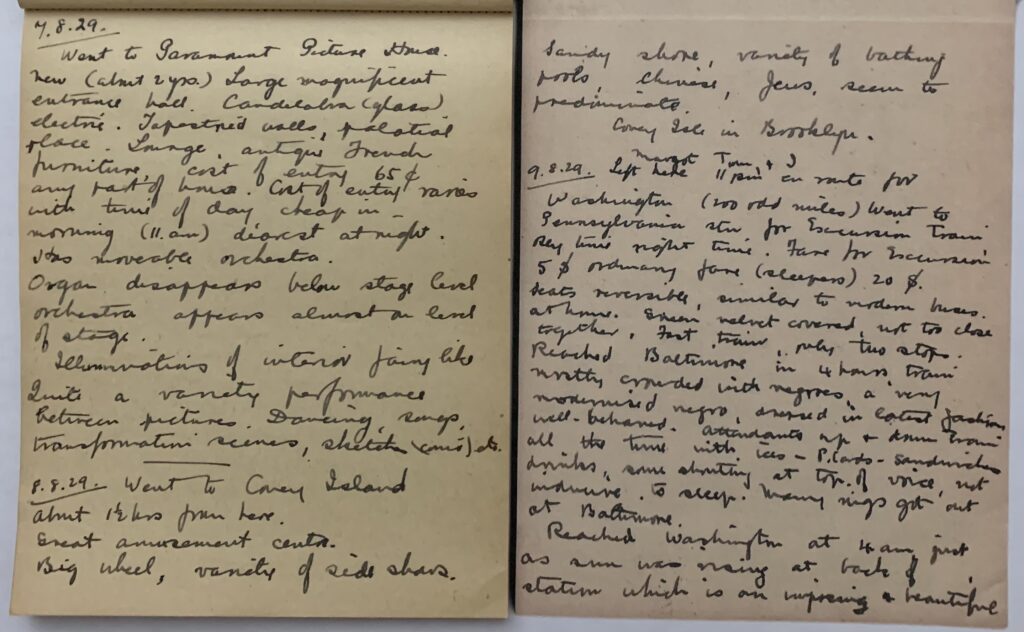 7.8.29.
Went to Paramount Picture House.
new (about 2 yrs.) Large magnificent
entrance hall. Candelabra (glass)
electric. Tapestried walls, palatial
place. Lounge, antique French
furniture, cost of entry 65¢
any part of house. Cost of entry varies
with time of day cheap in
morning (11. am) dearest at night.
Has moveable orchestra.
Organ disappears below stage level
orchestra appears almost on level
of stage.
Illuminations of interior fairy like
Quite a variety performance
between pictures. Dancing, songs,
transformation scenes, sketch (comic) etc.
8.8.29. Went to Coney Island
about 1½ hrs from here.
Great amusement centre.
Big wheel, variety of side shows.
Sandy shore, variety of bathing
pools, Chinese, Jews, seem to
predominate.
Coney Isle in Brooklyn.
Margot Tom & I
9.8.29. Left here 11 pm en route for
Washington (200 odd miles) Went to
Pennsylvania stn for Excursion Train
day time night time. Fare for Excursion
5 $ ordinary fare (sleepers) 20 $.
Seats reversible, similar to modern buses.
at home. Green velvet covered, not too close
together, Fast train, only two stops.
Reached Baltimore in 4 hours train
mostly crowded with negroes, a very
modernised negro, dressed in latest fashions
well-behaved. Attendants up & down train
all the time with ices - P. Cards - Sandwiches
drinks, some shouting at top of voice, not
inducive to sleep. Many nigs got out
at Baltimore.
Reached Washington at 4 am just
as sun was rising at back of
station which is an imposing & beautiful